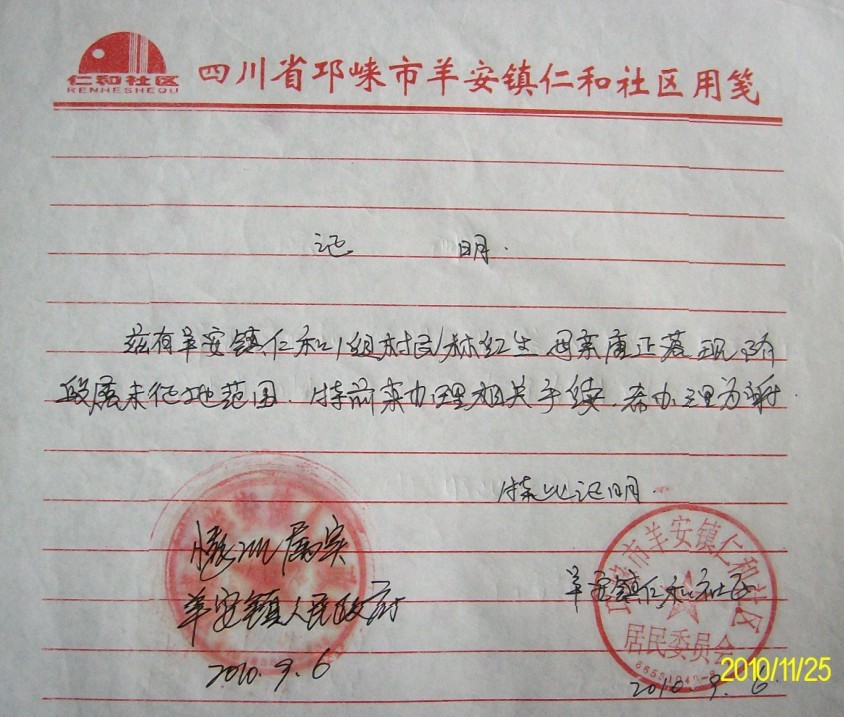 仁和社区
RENHESHEQU
四川省邛崃市羊安镇仁和社区用笺
证 明.
兹有羊安镇仁和1组村民林红生 母亲唐正蓉 现
段属未征地范围. 特前来办理相关手续. 希办理为谢.
特此证明.
情况属实
羊安镇人民政府
2010. 9. 6
羊安镇仁和社区
市羊安镇仁和社区
居民委员会
2010. 9. 6
2010/11/25